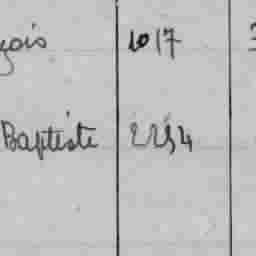 çois 1017
Baptiste 2234